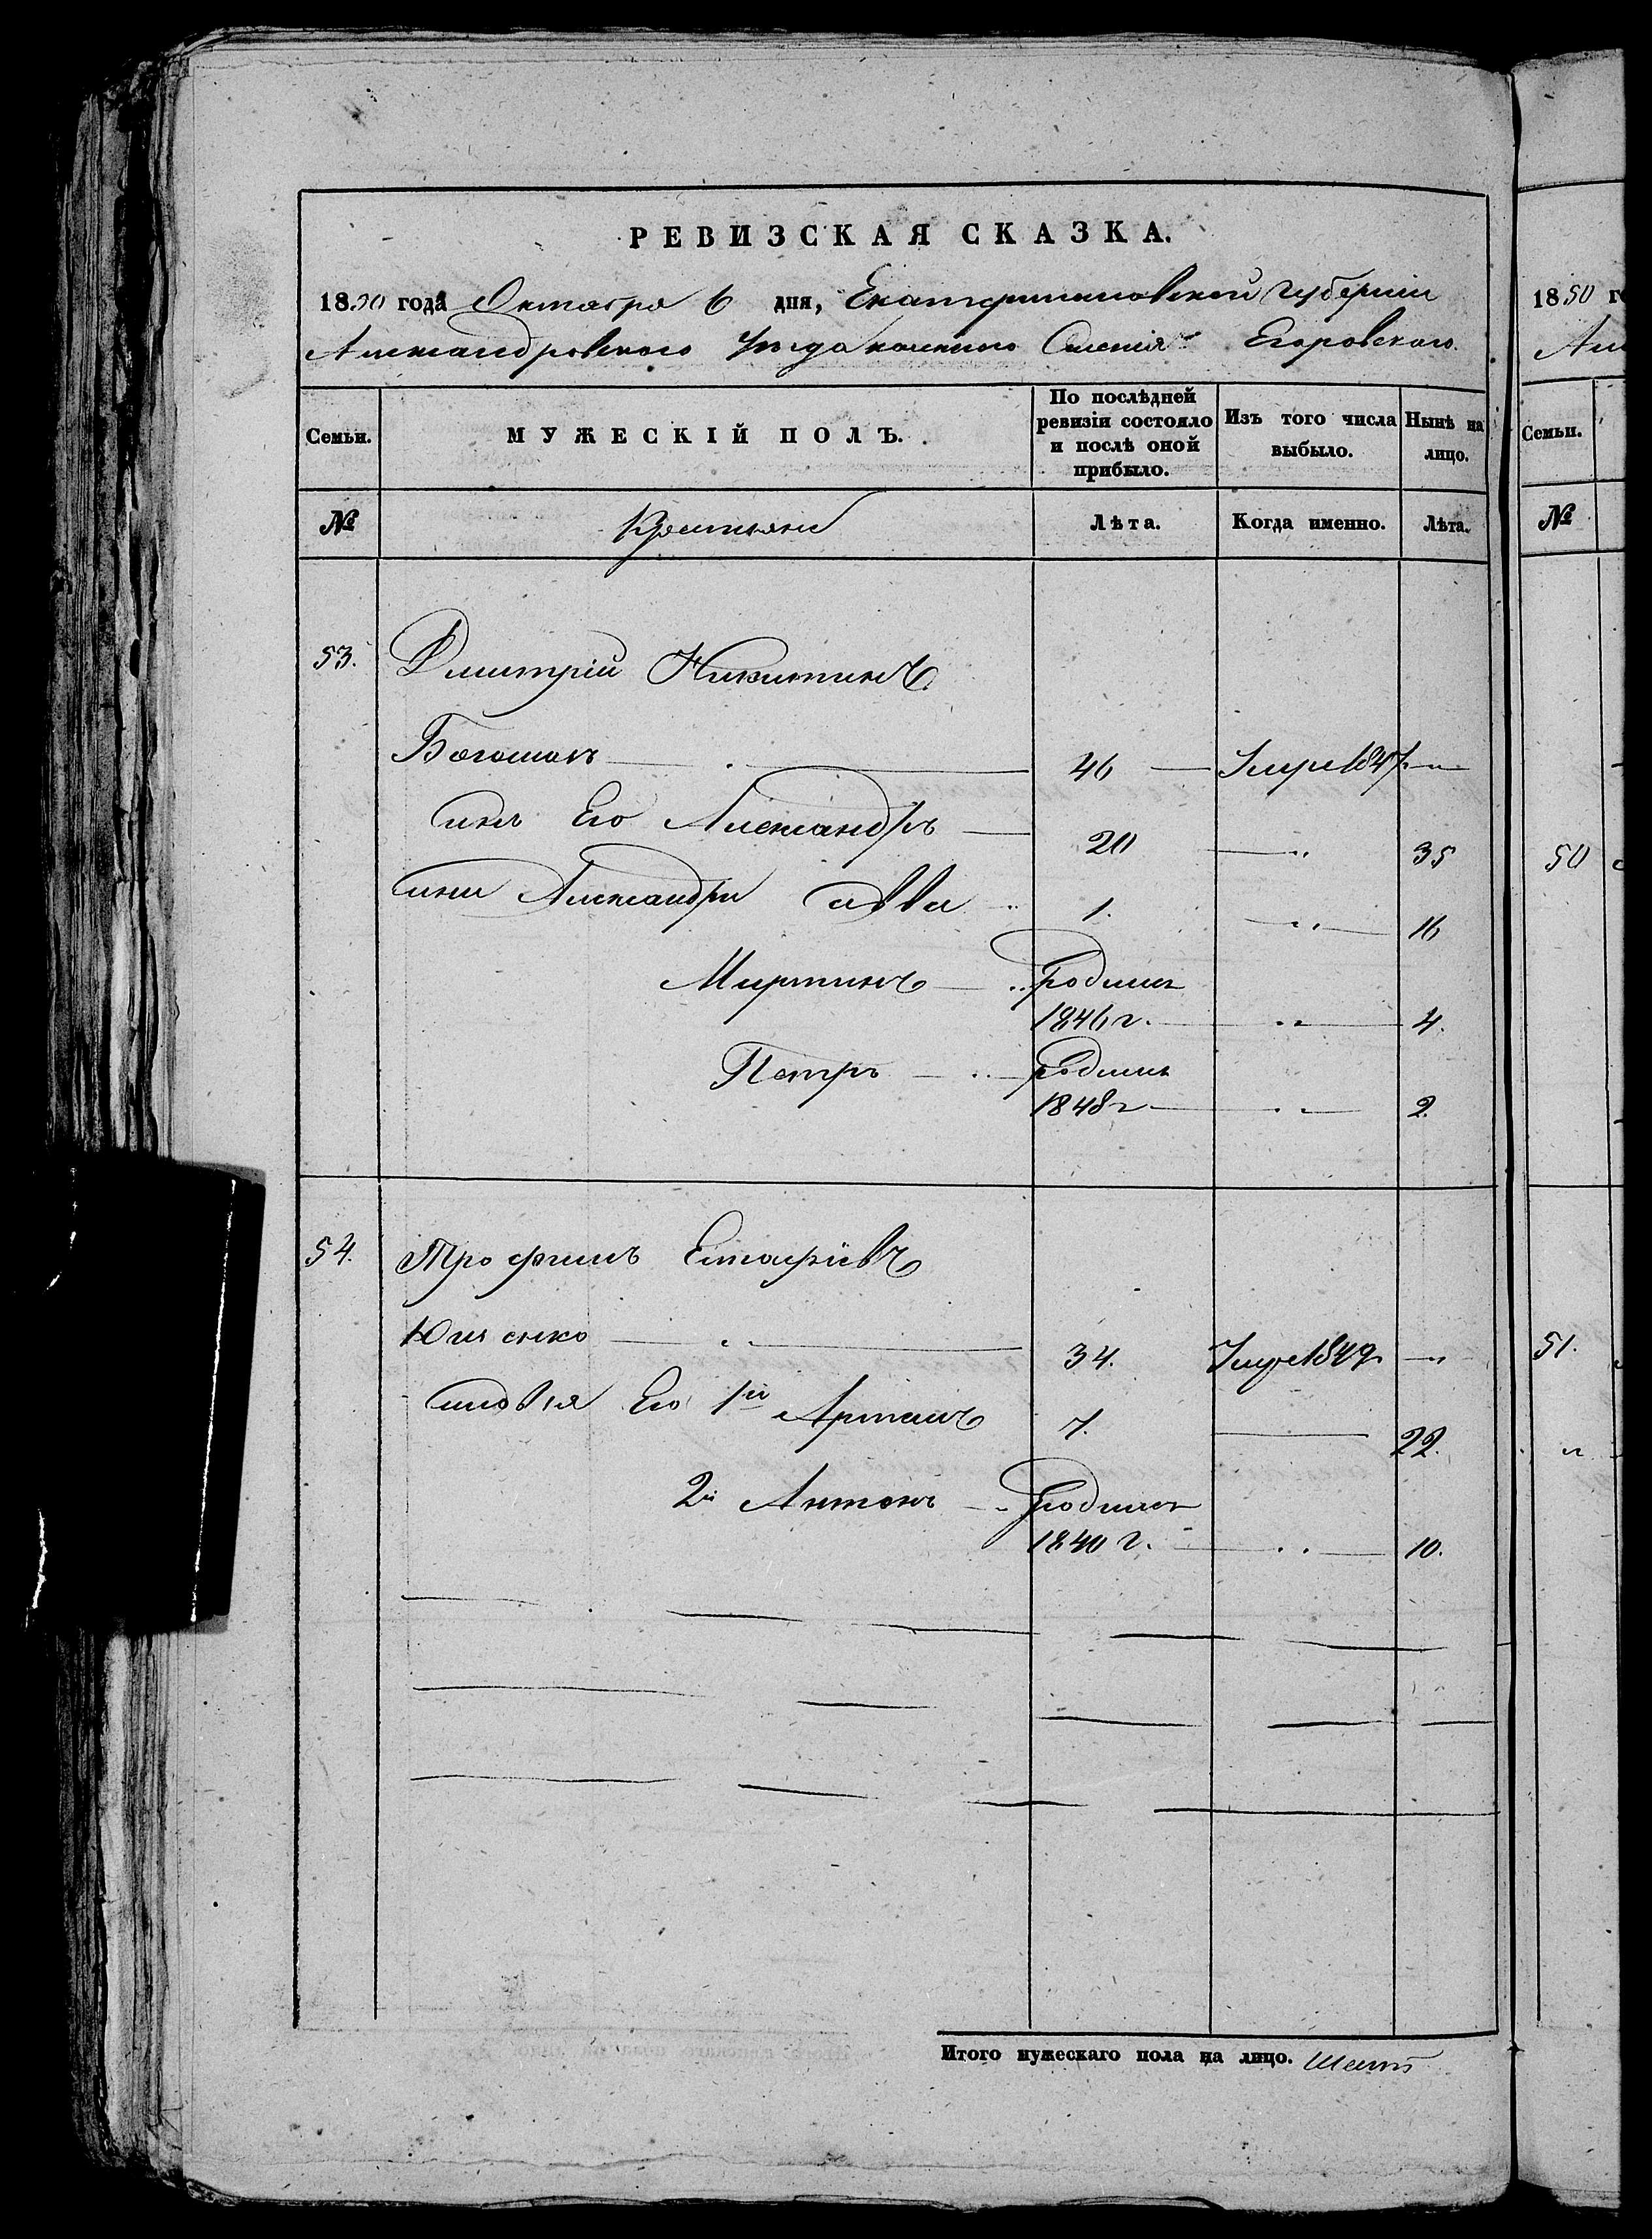 РЕВИЗСКАЯ СКАЗКА.
1850 года Октября 6 дня, Екатеринославской Губерніи
Александровского Уезда казенного Селенія Егоровского.
Семьи. МУЖЕСКІЙ ПОЛЪ. По послѣдней ревизіи состояло и послѣ оной прибыло. Изъ того числа выбыло. Нынѣ на лицо.
№ Крестьяне Лѣта. Когда именно. Лѣта.
53. Дмитрій Никитинъ
46 Умре 1847. "
сынъ Его Александръ 20 " 35
сыни Александра Савва 1. " 16
Мартинъ родился
1846 г. " 4.
Петръ родился
1848 г " 2.
54. Трофимъ
Ющенко 34. Умре 1849. "
сыновья Его 1й Артемъ 7. 22.
2й Антонъ родился
1840 г. " 10.
Итого мужескаго пола на лицо. Шесть
1850 г
Але
Семьи.
№
50
51.
"